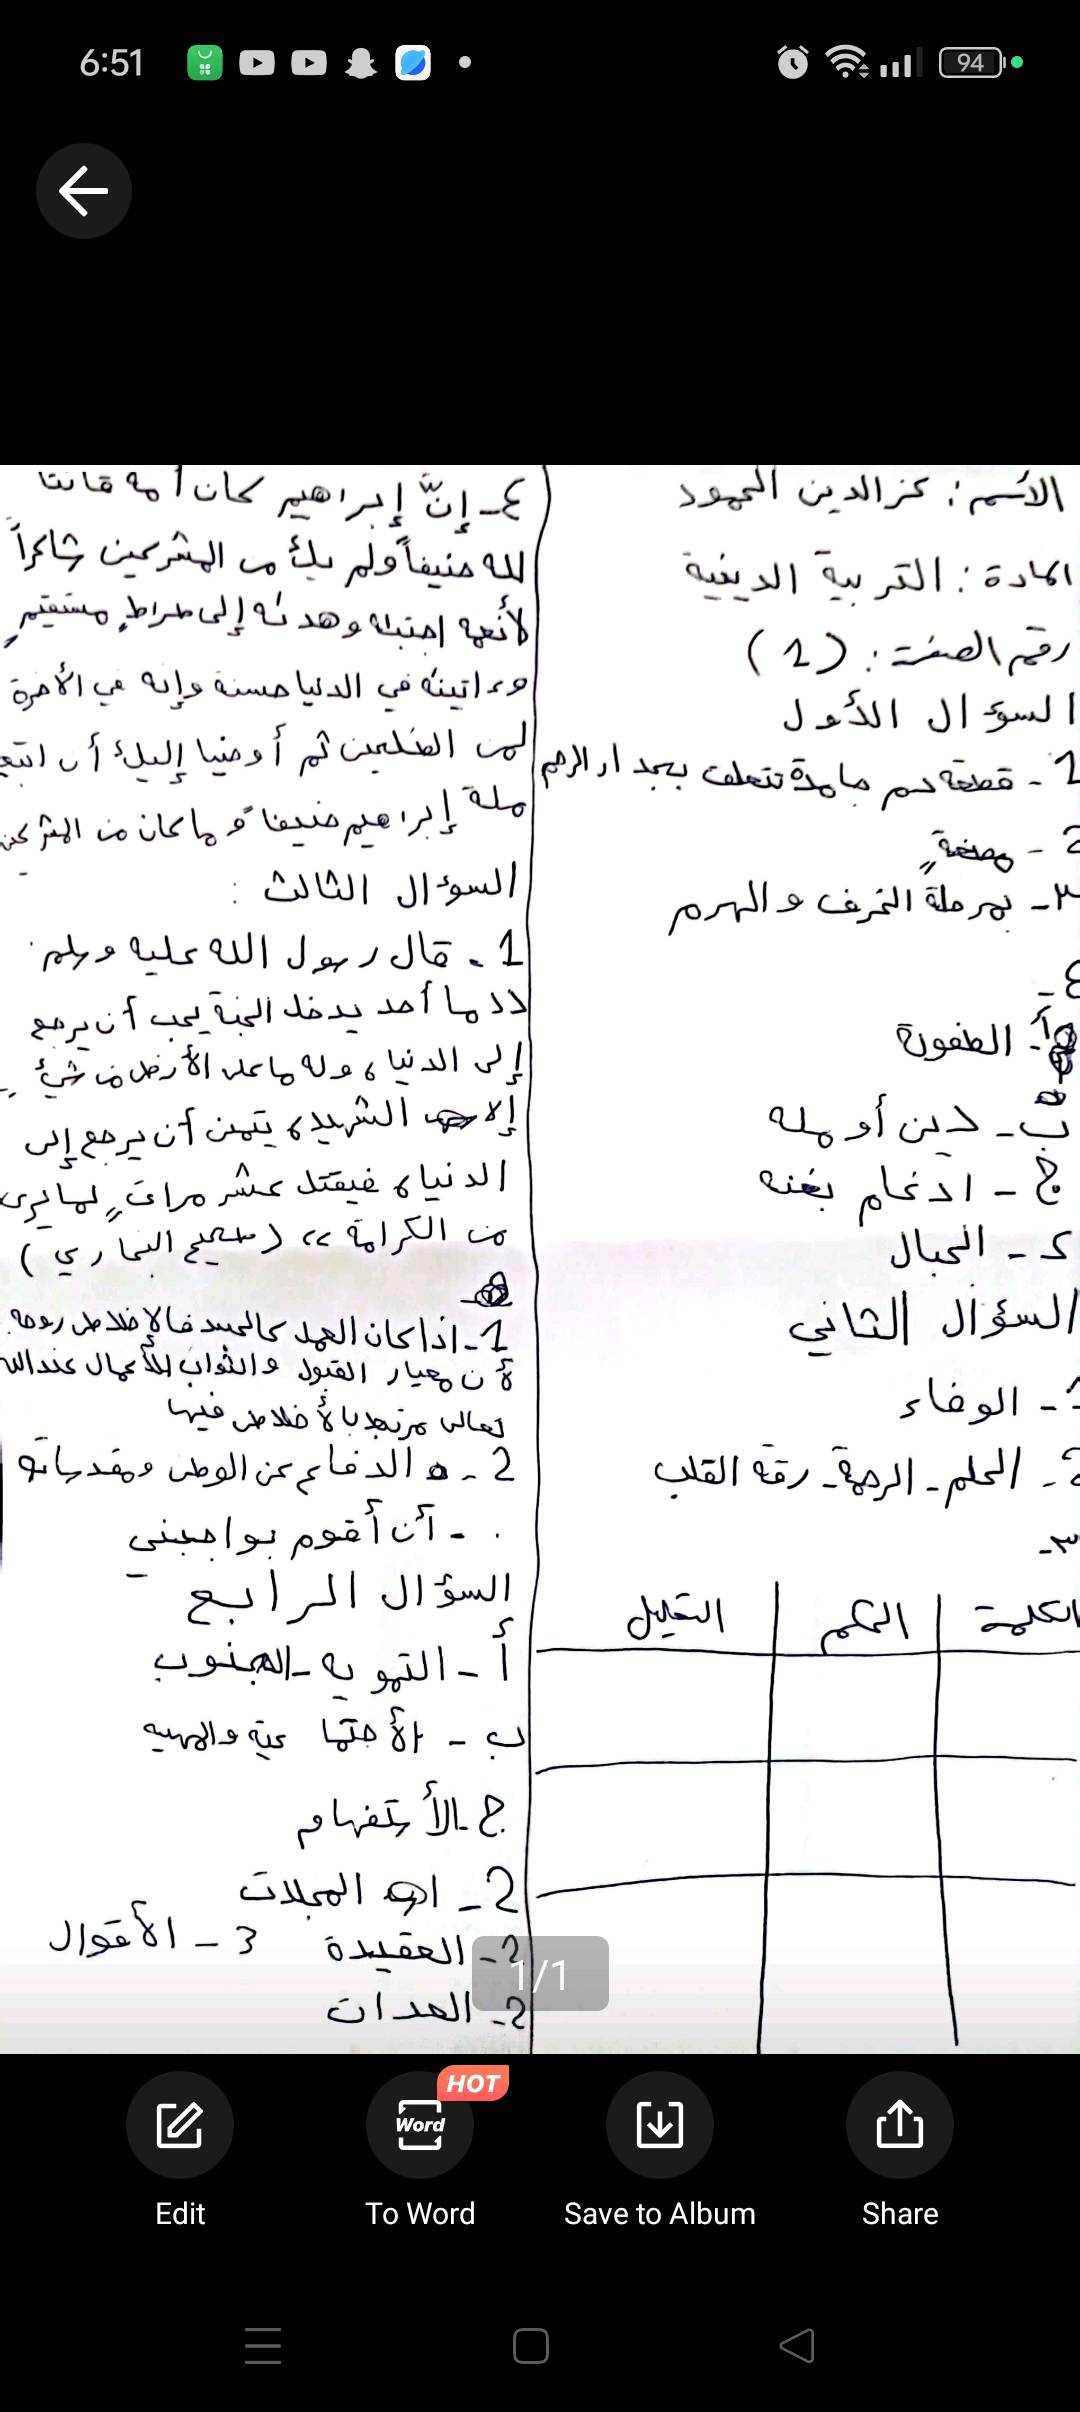 6:51
94
الأسم: عز الدين المحمود
المادة: التربية الدينية
رقم الصفحة: (1)
السوءال الأول
1- قطعة دم جامدة تتعلق بجدار الرحم
2- مضغة
٣- بمرحلة الخرف والهرم
٤-
أ- الطفولة
ب- دين أو مله
ج- ادغام بغنه
د- الجبال
السؤال الثاني
1- الوفاء
2- الحلم - الرحمة - رقة القلب
٣-
الكلمة الحكم التعليل
٤- إنَّ إبراهيم كان أمة قانتا
لله حنيفاً ولم يكُ من المشركين شاكراً
لأنعمه اجتبله وهدىٰه إلى صراط مستقيم
وءاتينٰه في الدنيا حسنة وإنه في الأخرة
لمن الصٰلحين ثم أوحينا إليك أن اتبع
ملة إبراهيم حنيفا وما كان من المشركين
السوءال الثالث :
1- قال رسول الله عليه وسلم:
<< ما أحد يدخل الجنة يحب أن يرجع
إلى الدنيا، وله ما على الأرض من شيء
إلا الشهيد، يتمنى أن يرجع إلى
الدنيا، فيقتل عشر مرات لما يرى
من الكرامة >> (صحيح البخاري)
1- اذا كان العمل كالجسد فالإخلاص روحه
لأن معيار القبول والثواب للأعمال عند الله
تعالى مرتبط بالأخلاص فيها
2- الدفاع عن الوطن ومقدساته
- أن أقوم بواجبني
السؤال الرابع
أ- التمويه - الجنوب
ب- الأجتما عية والمهيه
ج- الأستفهام
2- المجلات
2- العقيدة 3- الأقوال
2- العدات
1/1
HOT
Word
Edit To Word Save to Album Share